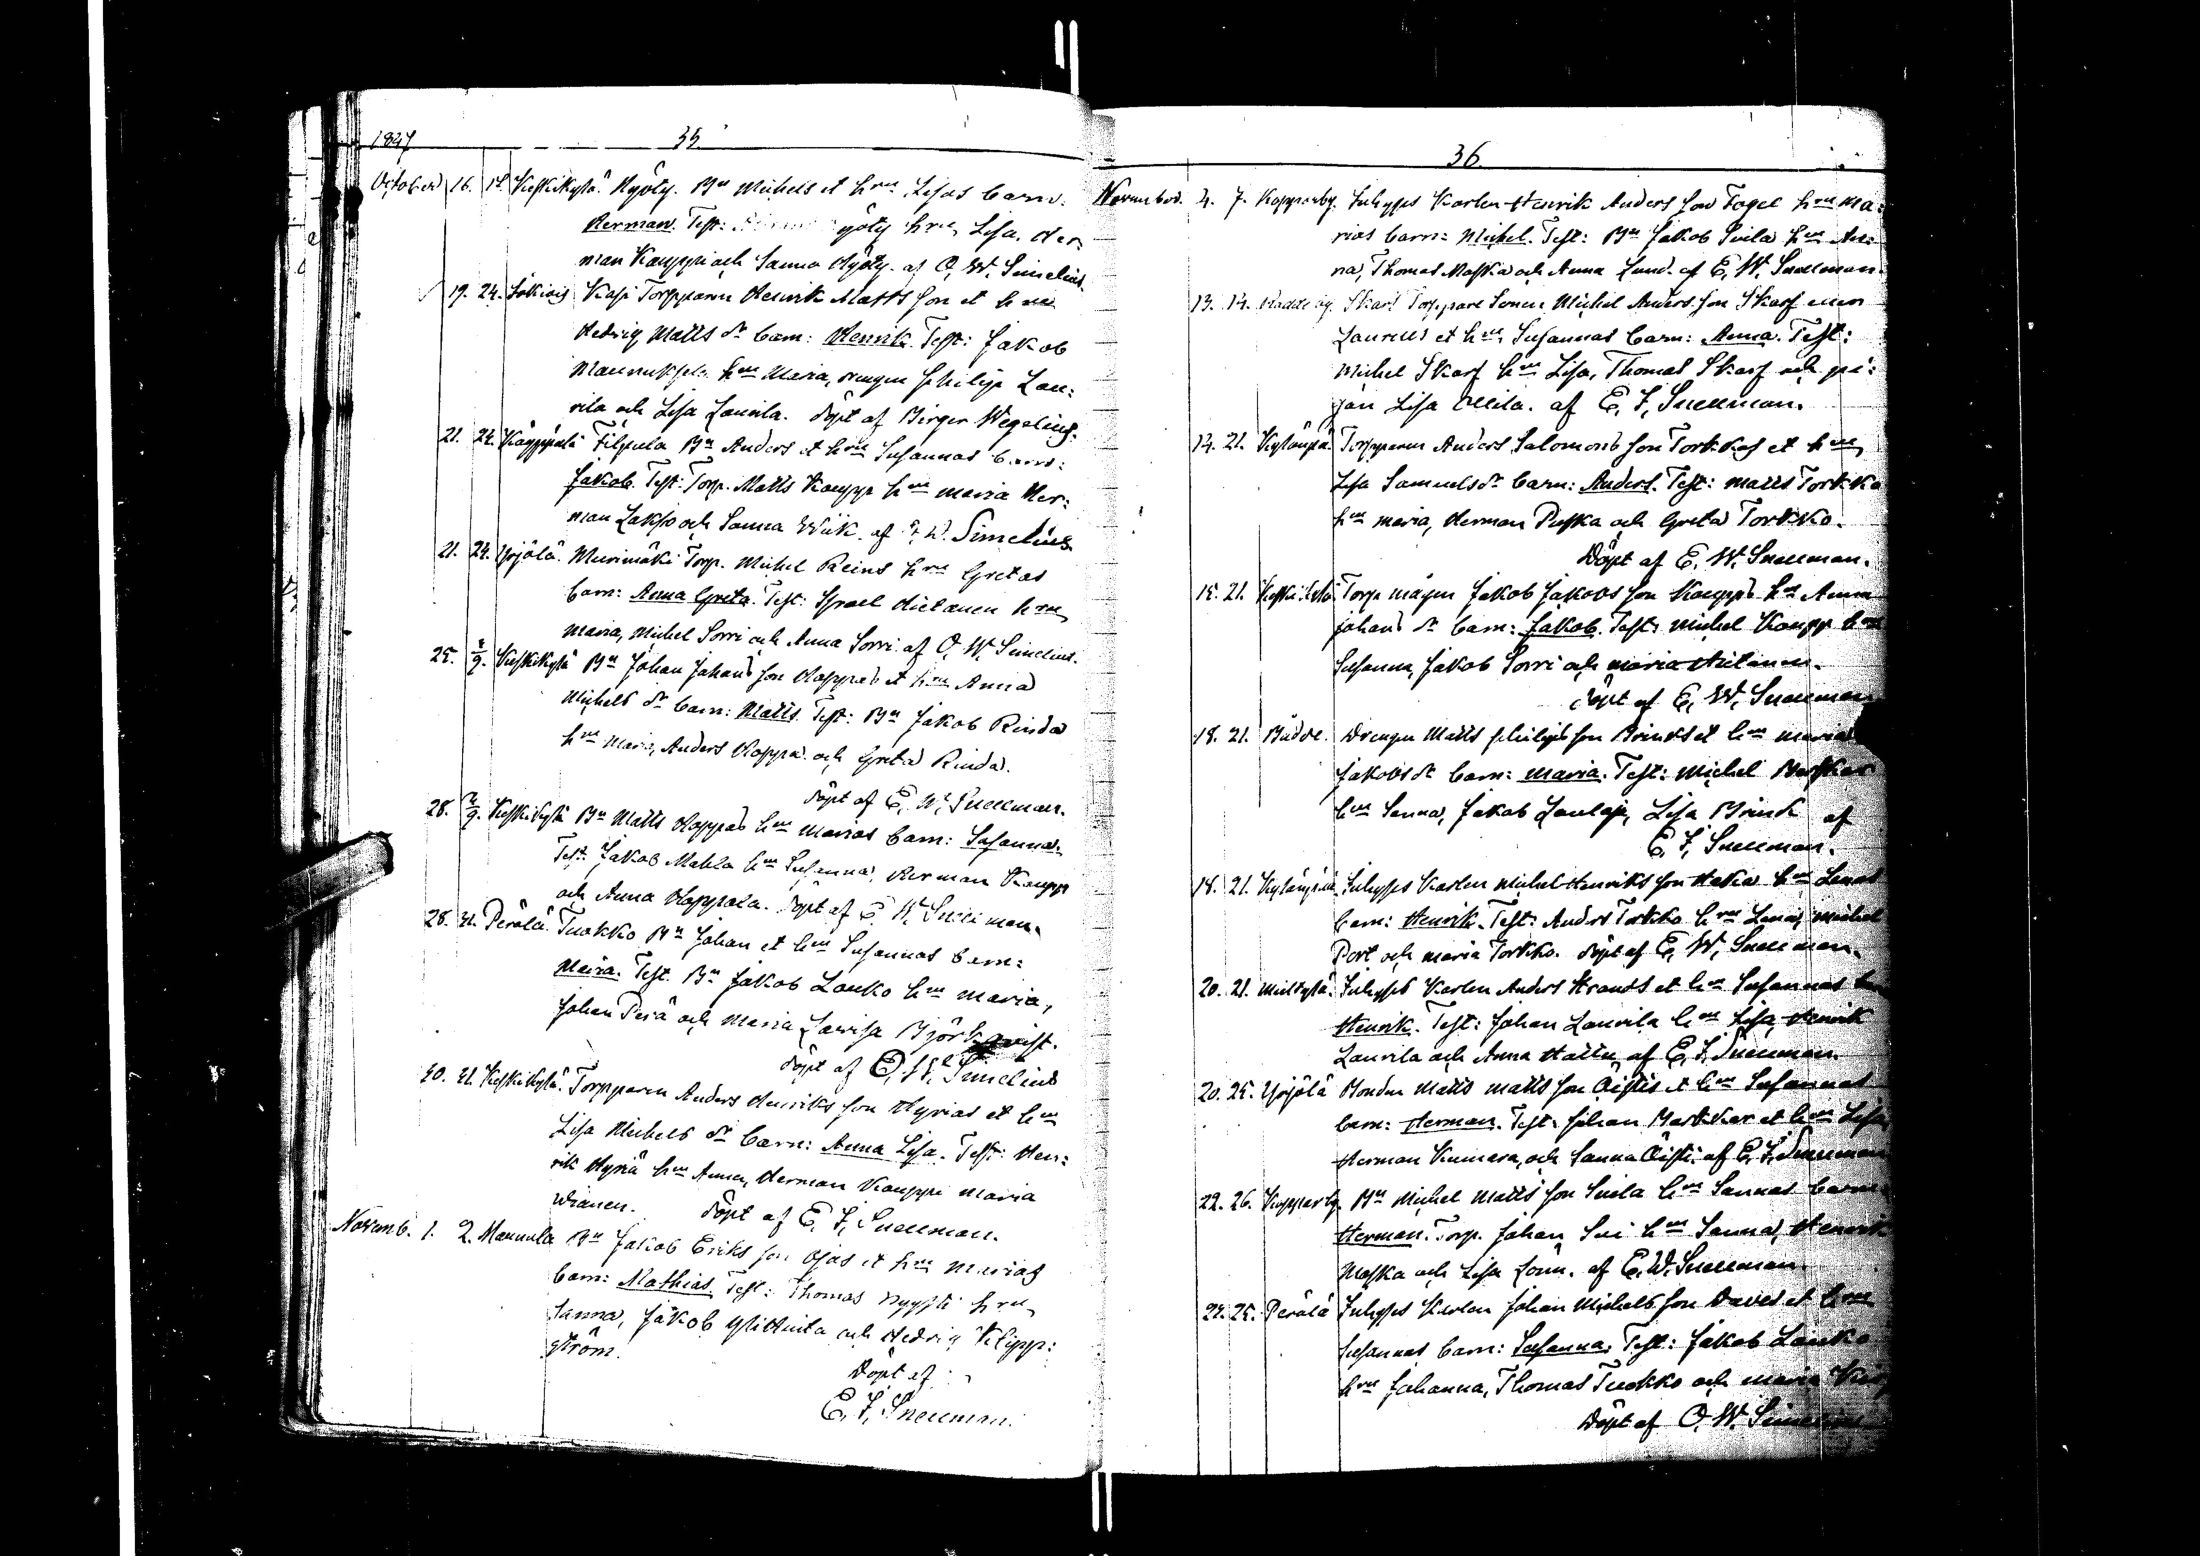 1847
35.
October 16. 17. Keskikylä. Hyöty. Bn Michels et hru Lisas barn:
Herman. Test: yöty hru Lisa, Her-
man Kauppi och Sanna Hyöty. af O. W. Simelius.
19. 24. Torpparen Henrik Matts son et hru
Hedvig Matts dr barn: Henrik. Test: Jakob
hru Maria, drengen Philip Lau-
rila och Lisa Laurila. döpt af Birger Wegelius.
21. 24. Filpula Bn Anders et hru Susannas barn:
Jakob. Test: Torp. Matts Kaupp hru Maria Her-
man Lakso och Sanna Wiik. af Simelius
21. 24. Yrjälä. Murimäki Torp. Michel Reins hru Gretas
barn: Anna Greta. Test: Israel Hietanen hru
Maria, Michel Sorri och Anna Sorri. af O. W. Simelius.
25. Keskikylä Bn Johan Johans son Koppas et hru Anna
Michels dr barn: Matts. Test: Bn Jakob Rinda
hru Maria, Anders Koppa och Greta Rinda.
döpt af E. W. Snellman.
28. Keskikylä Bn Matts hru Marias barn: Susanna.
Test: Jakob Mahla hru Susanna, Herman Kaupp
och Anna. döpt af E. W. Snellman.
28. 31. Perälä. Tuokko Bn Johan et hru Susannas barn:
Maria. Test. Bn Jakob Lauko hru Maria,
Johan Perä och Maria Lovisa Björkqvist.
döpt af O. W. Simelius
30. 31. Keskikylä. Torpparen Anders Henriks son Hyrias et hru
Lisa Michels dr barn: Anna Lisa. Test: Hen-
rik Hyriä hru Anna, Herman Kauppi Maria
döpt af E. F. Snellman.
Novemb. 1. 2. Mannula Bn Jakob Eriks son Ojas et hru Marias
barn: Mathias. Test: Thomas Nygsti hru
Sanna, Jakob Ylittula och Hedvig Klipp-
ström.
Döpt af
E. F. Snellman.
36.
November. 4. 7. Kopparby. Inhyses Karlen Henrik Anders son Fogel hru Ma-
rias barn: Michel. Test: Bn Jakob Suila hru An-
na, Thomas Maska och Anna Lund. af E. W. Snellman.
13. 14. Skarf Torppare Sonen Michel Anders son Skarf
et hru Susannas barn: Anna. Test:
Michel Skarf hru Lisa, Thomas Skarf och pi-
jan Lisa Ollila. af E. F. Snellman.
14. 21. Kylänpää Torpparen Anders Salomons son Torkkos et hru
Lisa Samuels dr barn: Anders. Test: Matts Torkko
hru Maria, Herman Puska och Greta Torkko.
Döpt af E. W. Snellman.
15. 21. Torp mågen Jakob Jakobs son Kaupps hru Anna
Johans dr barn: Jakob. Test: Michel Kaupp hru
Susanna, Jakob Sorri och Maria Hietanen.
döpt af E. W. Snellman
18. 21. Drengen Matts Philips son Brinks et hru Maria
Jakobs dr barn: Maria. Test: Michel
hru Sanna, Jakob Laulaja, Lisa Brink af
E. F. Snellman.
18. 21. Kylänpää Inhyses Karlen Michel Henriks son hru Lenas
barn: Henrik. Test: Anders Torkko hru Lena, Michel
Port och Maria Torkko. döpt af E. W. Snellman.
20. 21. Inhyses Karlen Anders et hru Susannas
Henrik. Test: Johan Laurila hru Lisa, Henrik
Laurila och Anna af E. F. Snellman.
20. 25. Yrjälä Bonden Matts Matts son et hru Susannas
barn: Herman. Test: Johan et hru Lisa
Herman och Sanna af E. F. Snellman
22. 26. Kopparby. Bn Michel Matts son Suila hru Sannas barn
Herman. Torp. Johan Sui hru Sanna, Henrik
Maska och Lisa. af E. W. Snellman.
24. 25. Perälä Inhyses Karlen Johan Michels son et hru
Susannas barn: Susanna. Test: Jakob Lauko
hru Johanna, Thomas Tuokko och Maria
Döpt af O. W. Simelius